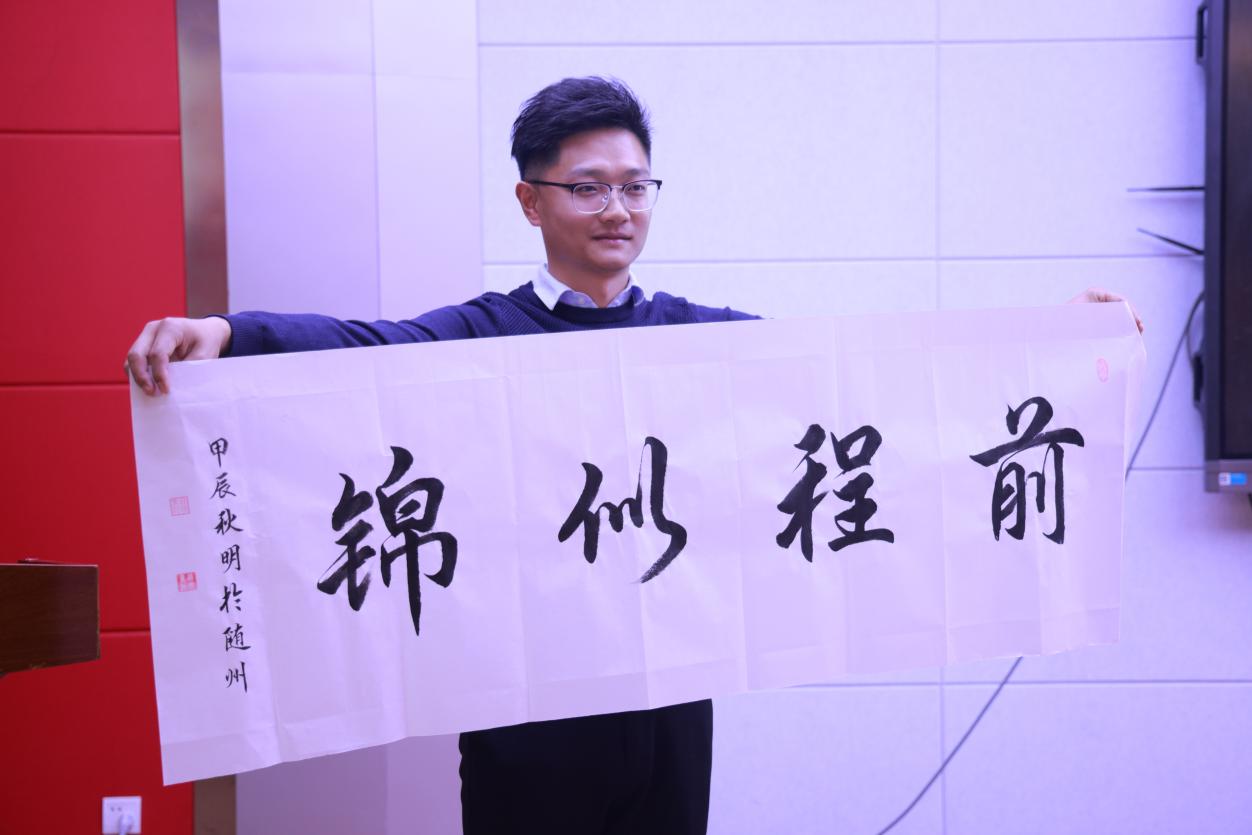 前程似锦
甲辰秋明於随州